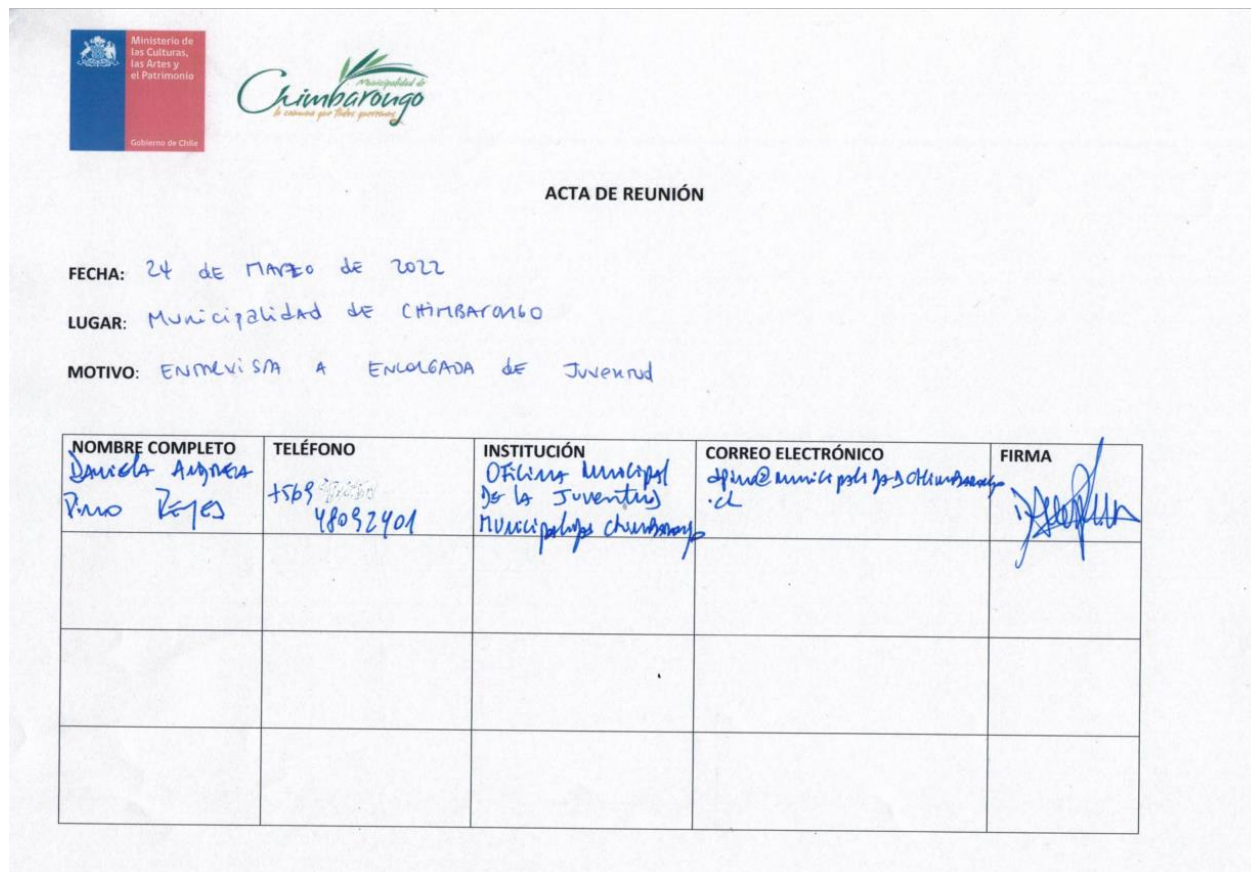 Ministerio de
las Culturas,
las Artes y
el Patrimonio
Gobierno de Chile
Municipalidad de
Chimbarongo
la comuna que todos queremos
ACTA DE REUNIÓN
FECHA: 24 de MARZO de 2022
LUGAR: Municipalidad de CHIMBARONGO
MOTIVO: ENTREVISTA A ENCARGADA de Juventud
NOMBRE COMPLETO TELÉFONO INSTITUCIÓN CORREO ELECTRÓNICO FIRMA
Daniela Andrea
Pino Reyes
+569
48092401
Oficina Municipal
De la Juventud
Municipalidad Chimbarongo
dpino@municipalidadchimbarongo
.cl